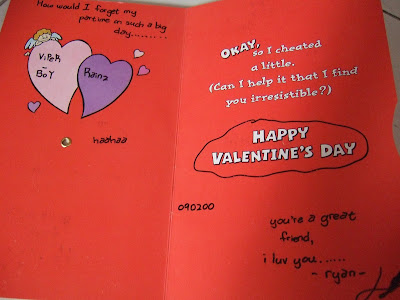 How would I forget my
partime on such a big
day.........
ViPeR
~
BoY
Rainz
hachaa
OKAY, so I cheated
a little.
(Can I help it that I find
you irresistible?)
HAPPY
VALENTINE'S DAY
090200
you're a great
friend,
i luv you......
~ryan~